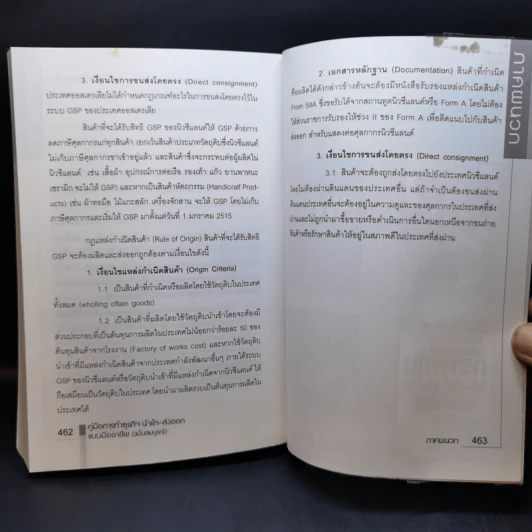 3. เงื่อนไขการขนส่งโดยตรง (Direct consignment)
ประเทศออสเตรเลียไม่ได้กำหนดกฎเกณฑ์อะไรในการขนส่งโดยตรงไว้ใน
ระบบ GSP ของประเทศออสเตรเลีย
สินค้าที่จะได้รับสิทธิ GSP ของนิวซีแลนด์ให้ GSP ด้วยการ
ลดภาษีศุลกากรแก่ทุกสินค้า (ยกเว้นสินค้าประเภทวัตถุดิบซึ่งนิวซีแลนด์
ไม่เก็บภาษีศุลกากรขาเข้าอยู่แล้ว และสินค้าซึ่งจะกระทบต่อผู้ผลิตใน
นิวซีแลนด์ เช่น เสื้อผ้า อุปกรณ์การต่อเรือ รองเท้า แก้ว ยานพาหนะ
เซรามิก จะไม่ให้ GSP) และหากเป็นสินค้าหัตถกรรม (Handicraft Prod-
ucts) เช่น ผ้าทอมือ ไม้แกะสลัก เครื่องจักสาน จะให้ GSP โดยไม่เก็บ
ภาษีศุลกากรและเริ่มให้ GSP มาตั้งแต่วันที่ 1 มกราคม 2515
กฎแหล่งกำเนิดสินค้า (Rule of Origin) สินค้าที่จะได้รับสิทธิ
GSP จะต้องผลิตและส่งออกถูกต้องตามเงื่อนไขดังนี้
1. เงื่อนไขแหล่งกำเนิดสินค้า (Origin Criteria)
1.1 เป็นสินค้าที่กำเนิดหรือผลิตโดยใช้วัตถุดิบในประเทศ
ทั้งหมด (wholling oftain goods)
1.2 เป็นสินค้าที่ผลิตโดยใช้วัตถุดิบนำเข้าโดยจะต้องมี
ส่วนประกอบที่เป็นต้นทุนการผลิตในประเทศไม่น้อยกว่าร้อยละ 50 ของ
ต้นทุนสินค้าจากโรงงาน (Factory of works cost) และหากใช้วัตถุดิบ
นำเข้าที่มีแหล่งกำเนิดจากประเทศกำลังพัฒนาอื่นๆ ภายใต้ระบบ
GSP ของนิวซีแลนด์หรือวัตถุดิบนำเข้าที่มีแหล่งกำเนิดจากนิวซีแลนด์ ให้
ถือเสมือนเป็นวัตถุดิบในประเทศ โดยนำมาผลิตรวมเป็นต้นทุนการผลิตใน
ประเทศได้
462
คู่มือการทำธุรกิจ นำเข้า-ส่งออก
แบบมืออาชีพ (ฉบับสมบูรณ์)
2. เอกสารหลักฐาน (Documentation) สินค้าที่กำเนิด
หรือผลิตได้ดังกล่าวข้างต้นจะต้องมีหนังสือรับรองแหล่งกำเนิดสินค้า
From 59A ซึ่งขอรับได้จากสถานทูตนิวซีแลนด์หรือ Form A โดยไม่ต้อง
ให้ส่วนราชการรับรองให้ช่วง II ของ Form A เพื่อติดแนบไปกับสินค้า
ส่งออก สำหรับแสดงต่อศุลกากรนิวซีแลนด์
3. เงื่อนไขการขนส่งโดยตรง (Direct consignment)
3.1 สินค้าจะต้องถูกส่งโดยตรงไปยังประเทศนิวซีแลนด์
โดยไม่ต้องผ่านดินแดนของประเทศอื่น แต่ถ้าจำเป็นต้องขนส่งผ่าน
ดินแดนประเทศอื่นจะต้องอยู่ในความดูแลของศุลกากรในประเทศที่ส่ง
ผ่านและไม่ถูกนำมาซื้อขายหรือดำเนินการอื่นใดนอกเหนือจากขนถ่าย
สินค้าหรือรักษาสินค้าให้อยู่ในสภาพดีในประเทศที่ส่งผ่าน
ภาคผนวก 463
ภาคผนวก